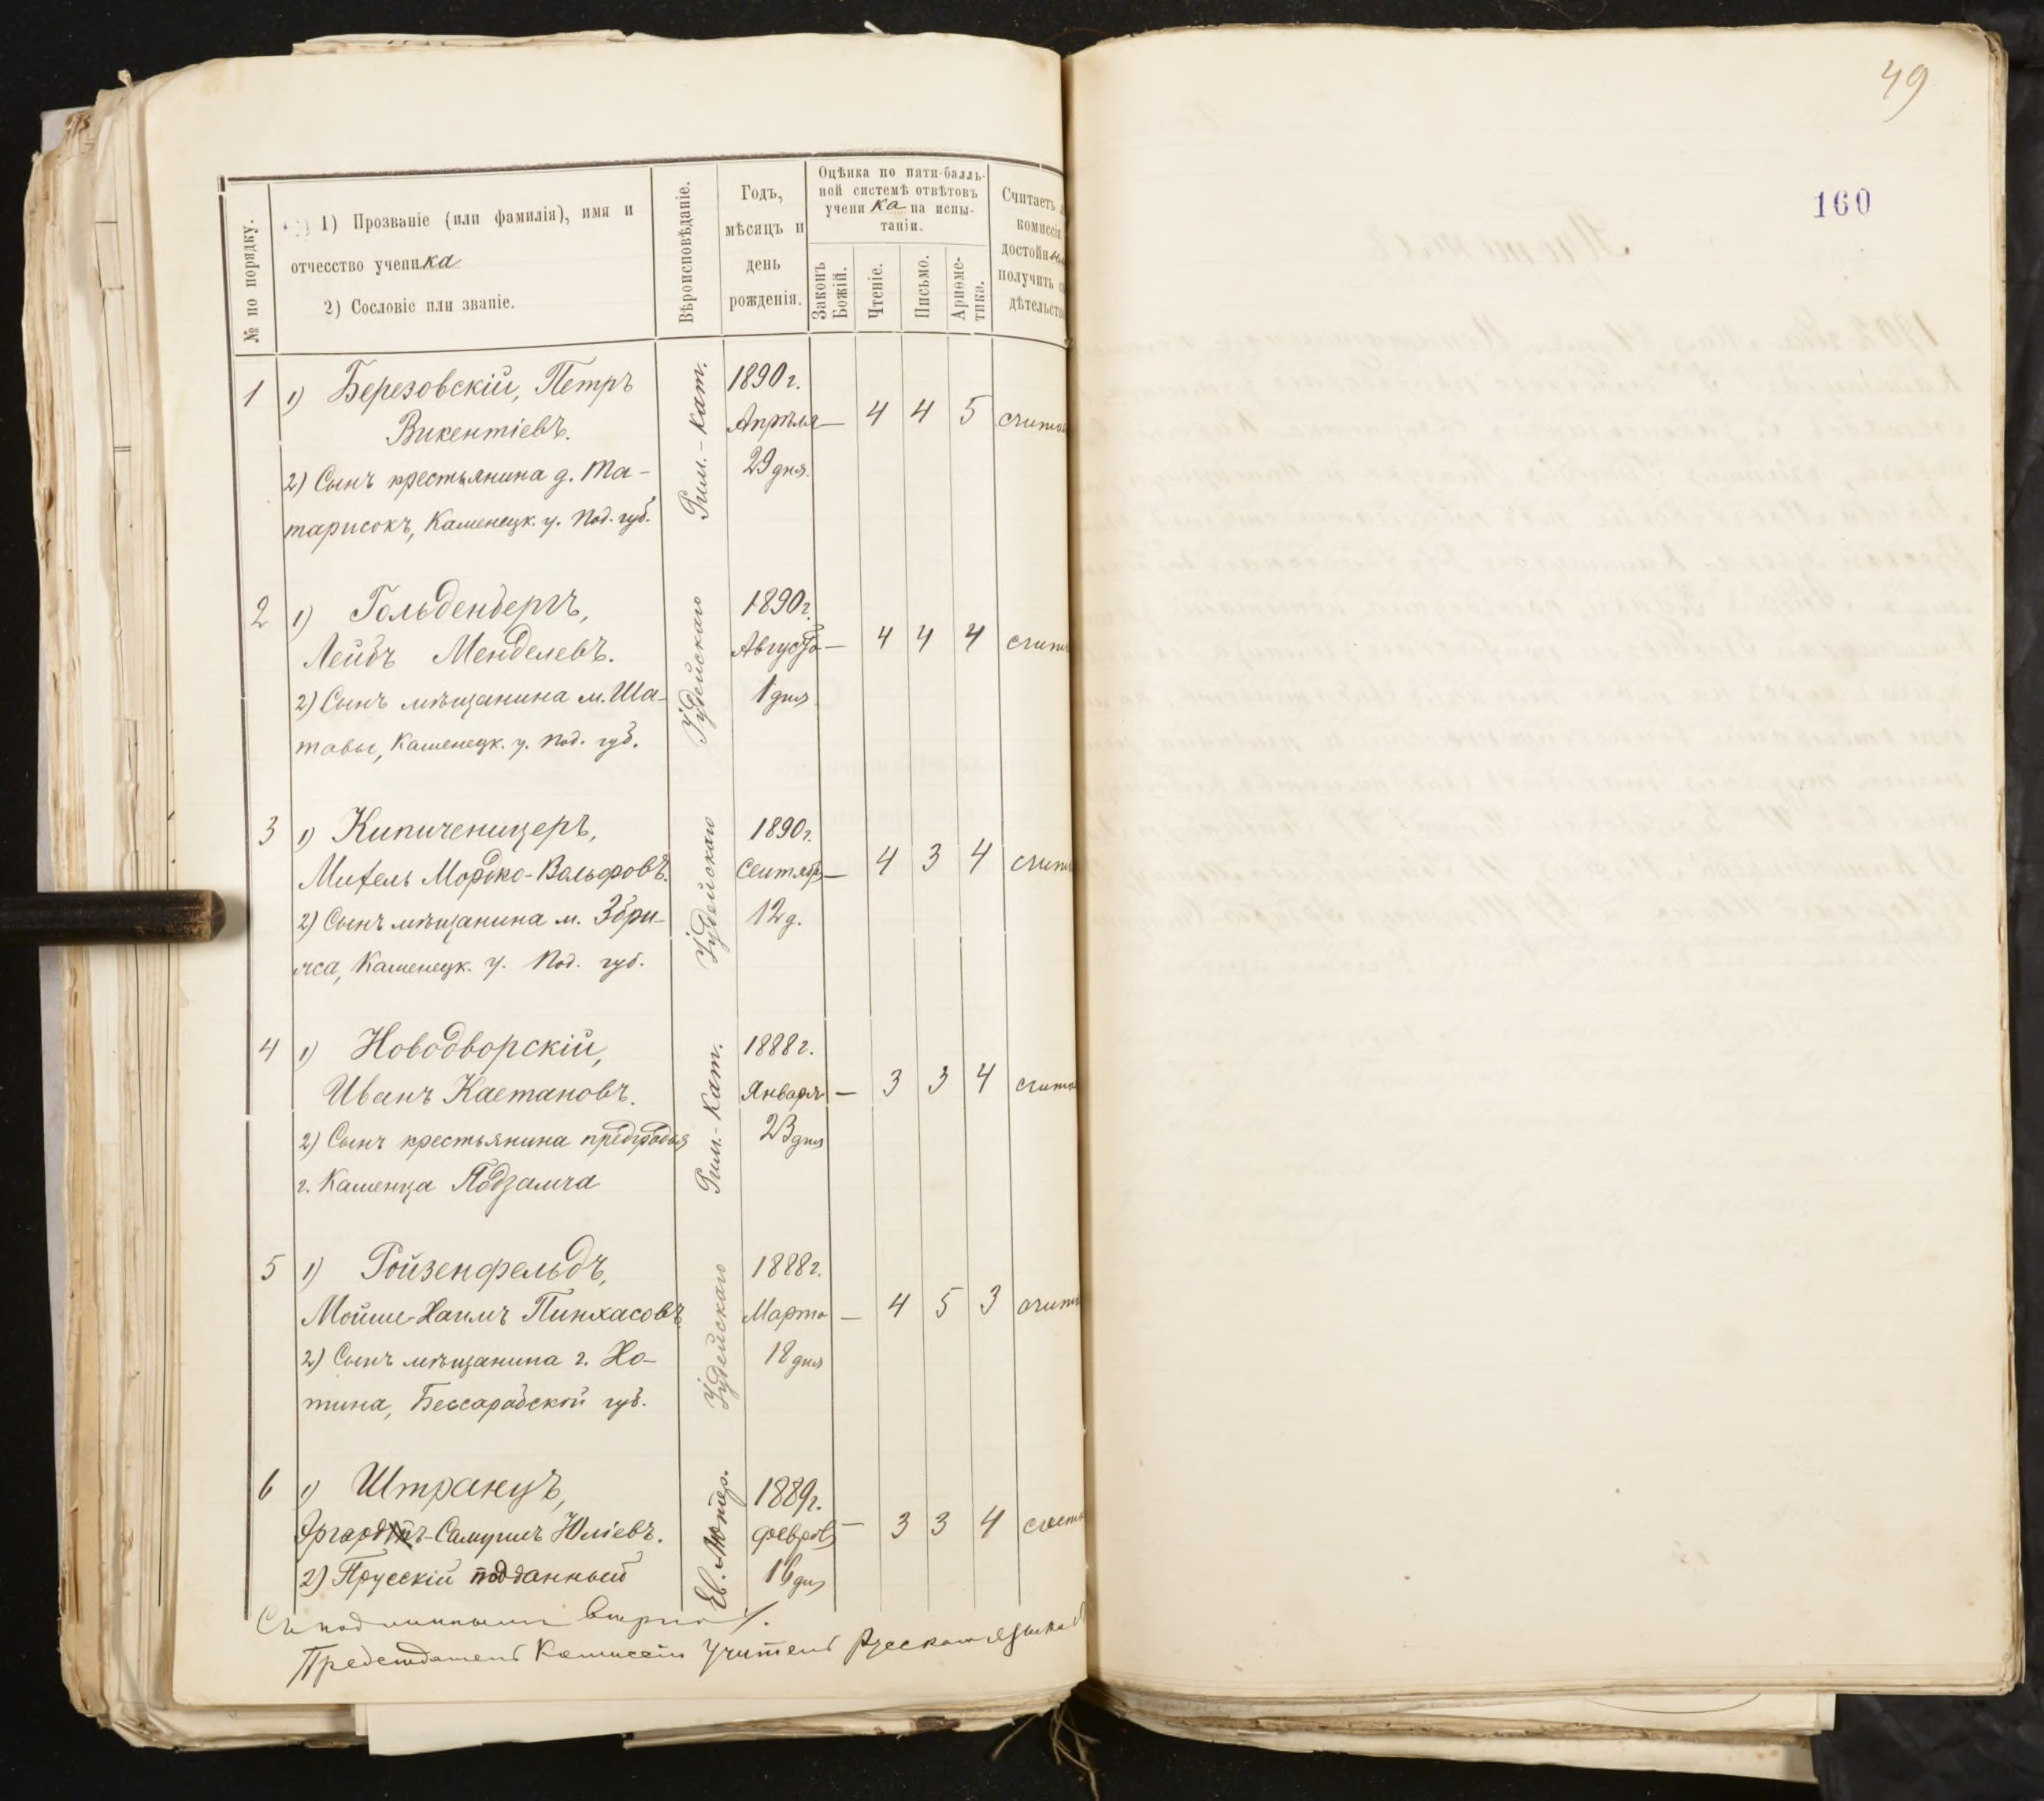 49
160
№ по порядку.
1) Прозваніе (или фамилія), имя и
отчесство ученика
2) Сословіе или званіе.
Вѣроисповѣданіе.
Годъ,
мѣсяцъ и
день
рожденія.
Оцѣнка по пяти-балль-
ной системѣ отвѣтовъ
ученика на испы-
таніи.
Законъ
Божій.
Чтеніе.
Письмо.
Ариѳме-
тика.
Считаетъ
комиссія
достойн
получить с
дѣтельств
1 1) Березовскій, Петръ
Викентіевъ.
2) Сынъ крестьянина д. Та-
тарисокъ, Каменецк. у. Под. губ.
Рим.-Кат.
1890 г.
Апрѣля
29 дня.
— 4 4 5 счита
2 1) Гольденбергъ,
Лейбъ Менделевъ.
2) Сынъ мѣщанина м. Ша-
товы, Каменецк. у. Под. губ.
Іудейскаго
1890 г.
Августа
1 дня
— 4 4 4 счит
3 1) Кипиченицеръ,
Михель Мордко-Вольфовъ.
2) Сынъ мѣщанина м. Збри-
жа, Каменецк. у. Под. губ.
Іудейскаго
1890 г.
Сентябр
12 д.
— 4 3 4 счит
4 1) Новодворскій,
Иванъ Каетановъ.
2) Сынъ крестьянина предградья
г. Каменца Подзамча
Рим.-Кат.
1888 г.
Января
23 дня
— 3 3 4 счита
5 1) Ройзенфельдъ,
Мойше-Хаимъ Пинхасовъ
2) Сынъ мѣщанина г. Хо-
тина, Бессарабской губ.
Іудейскаго
1888 г.
Марта
18 дня
— 4 5 3 счит
6 1) Штранцъ,
-Самуилъ Юліевъ.
2) Прусскій подданный
Ев.-Лютер.
1889 г.
Феврал
16 дня
— 3 3 4 счит
Съ подлиннымъ вѣрно
Предсѣдатель Комиссіи Учитель Русскаго языка